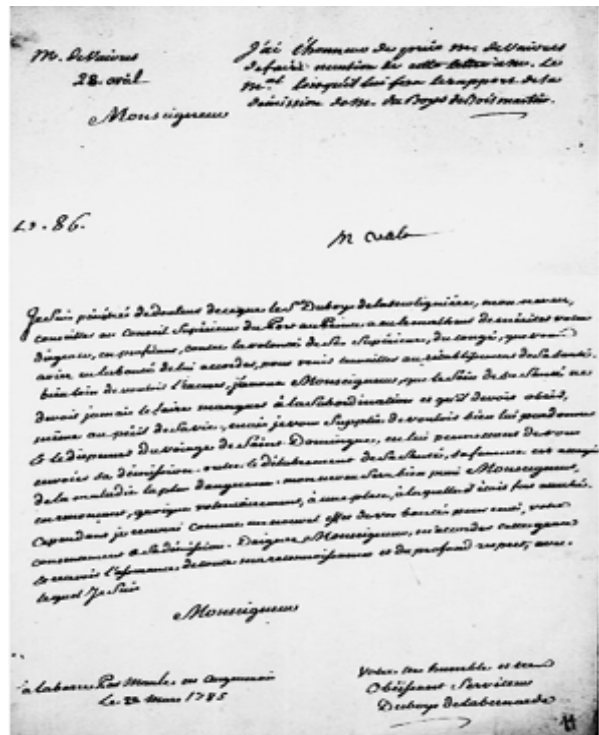 M. De Vaivres
28. avril
J'ai l'honneur de prier M. de Vaivres
de faire mention de cette lettre a M. le
M.al lorsqu'il lui fera le rapport de la
démission de M. du Boys de Boismartin.
Monseigneur
29. 86.
Je suis pénétré de douleur de ce que le S.r Duboys de, mon neveu,
conseiller au Conseil Supérieur du Port au Prince, a eu le malheur de mériter votre
disgrace, en profitant, contre la volonté de ses Supérieurs, du congé, que vous
aviez eu la bonté de lui accorder, pour venir travailler au rétablissement de sa santé.
bien loin de vouloir l'excuser, j'avoue Monseigneur, que le soin de sa Santé ne
devoit jamais le faire manquer à la Subordination et qu'il devoit obéir,
même au péril de sa vie, mais je vous Supplie de vouloir bien lui pardonner
& le dispenser du voiage de Saint Domingue, en lui permettant de vous
envoier sa démission. outre le délabrement de sa Santé, sa femme est
de la maladie la plus dangereuse. mon neveu Sera bien puni Monseigneur,
en renonçant, quoique volontairement, à une place, à laquelle il étoit fort attaché.
Cependant je recevrai comme un nouvel effet de vos bontés pour moi, votre
consentement à sa démission. Daignez, Monseigneur, m'accorder cette grace
& recevoir l'assurance de toute ma reconnoissance et du profond respect, avec
lequel Je Suis
Monseigneur
à labarre Par Mansle en angoumois
Le 22 Mars 1785
Votre très humble et très
Obéissant Serviteur
Duboys de labernarde